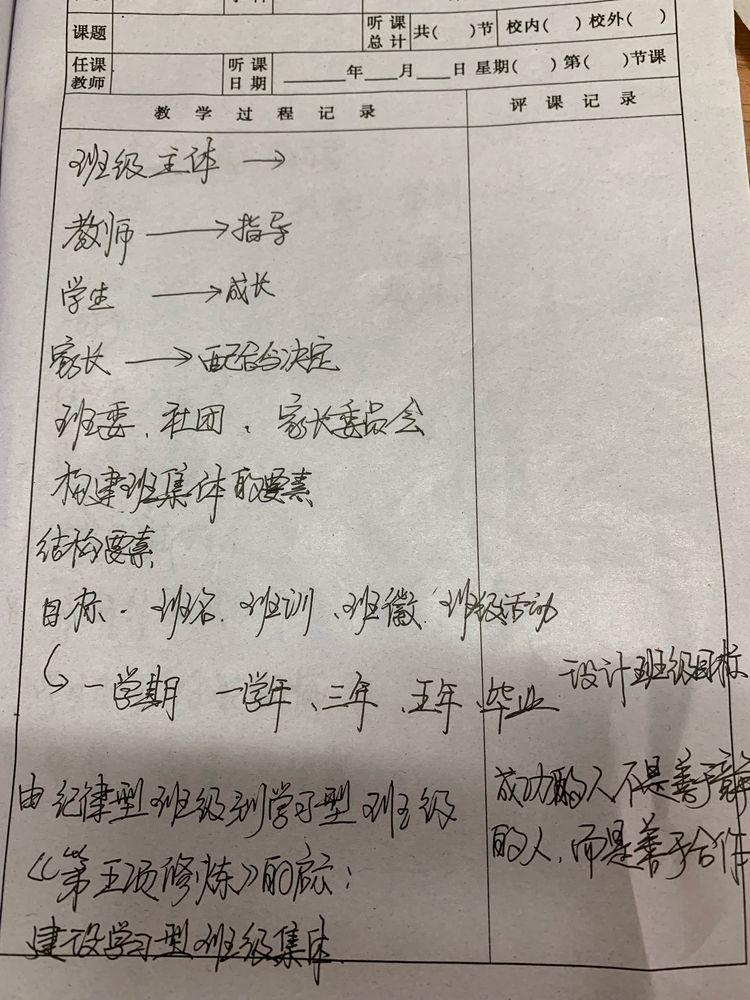 课题 听课总计 共( )节 校内( )校外( )
任课教师 听课日期 年 月 日 星期( )第( )节课
教学过程记录 评课记录
班级主体 →
教师 → 指导
学生 → 成长
家长 → 配合决定
班委、社团、家长委员会
构建班集体的要素
结构要素
目标、班名、班训、班徽、班级活动
一学期 一学年、三年、五年、毕业 设计班级目标
由纪律型班级到学习型班级
《第五项修炼》的启示:
建设学习型班级集体
成功的人不是善于竞争
的人,而是善于合作